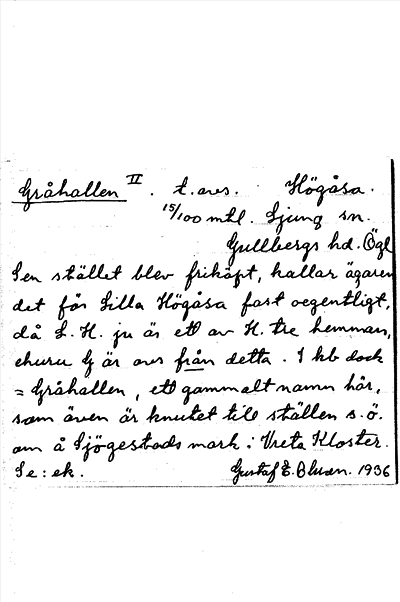 Gråhallen II. t. avs. Högåsa.
15/100 mtl. Ljung sn.
Gullbergs hd. Ögl
Sen stället blev friköpt, kallar ägaren
det för Lilla Högåsa fast oegentligt,
då L. H. ju är ett av H. tre hemman,
ehuru G är avs från detta. I kb dock
= Gråhallen, ett gammalt namn här,
som även är knutet till ställen s.ö.
om å Sjögestads mark i Vreta Kloster.
Se: ek. Gustaf E. 1936